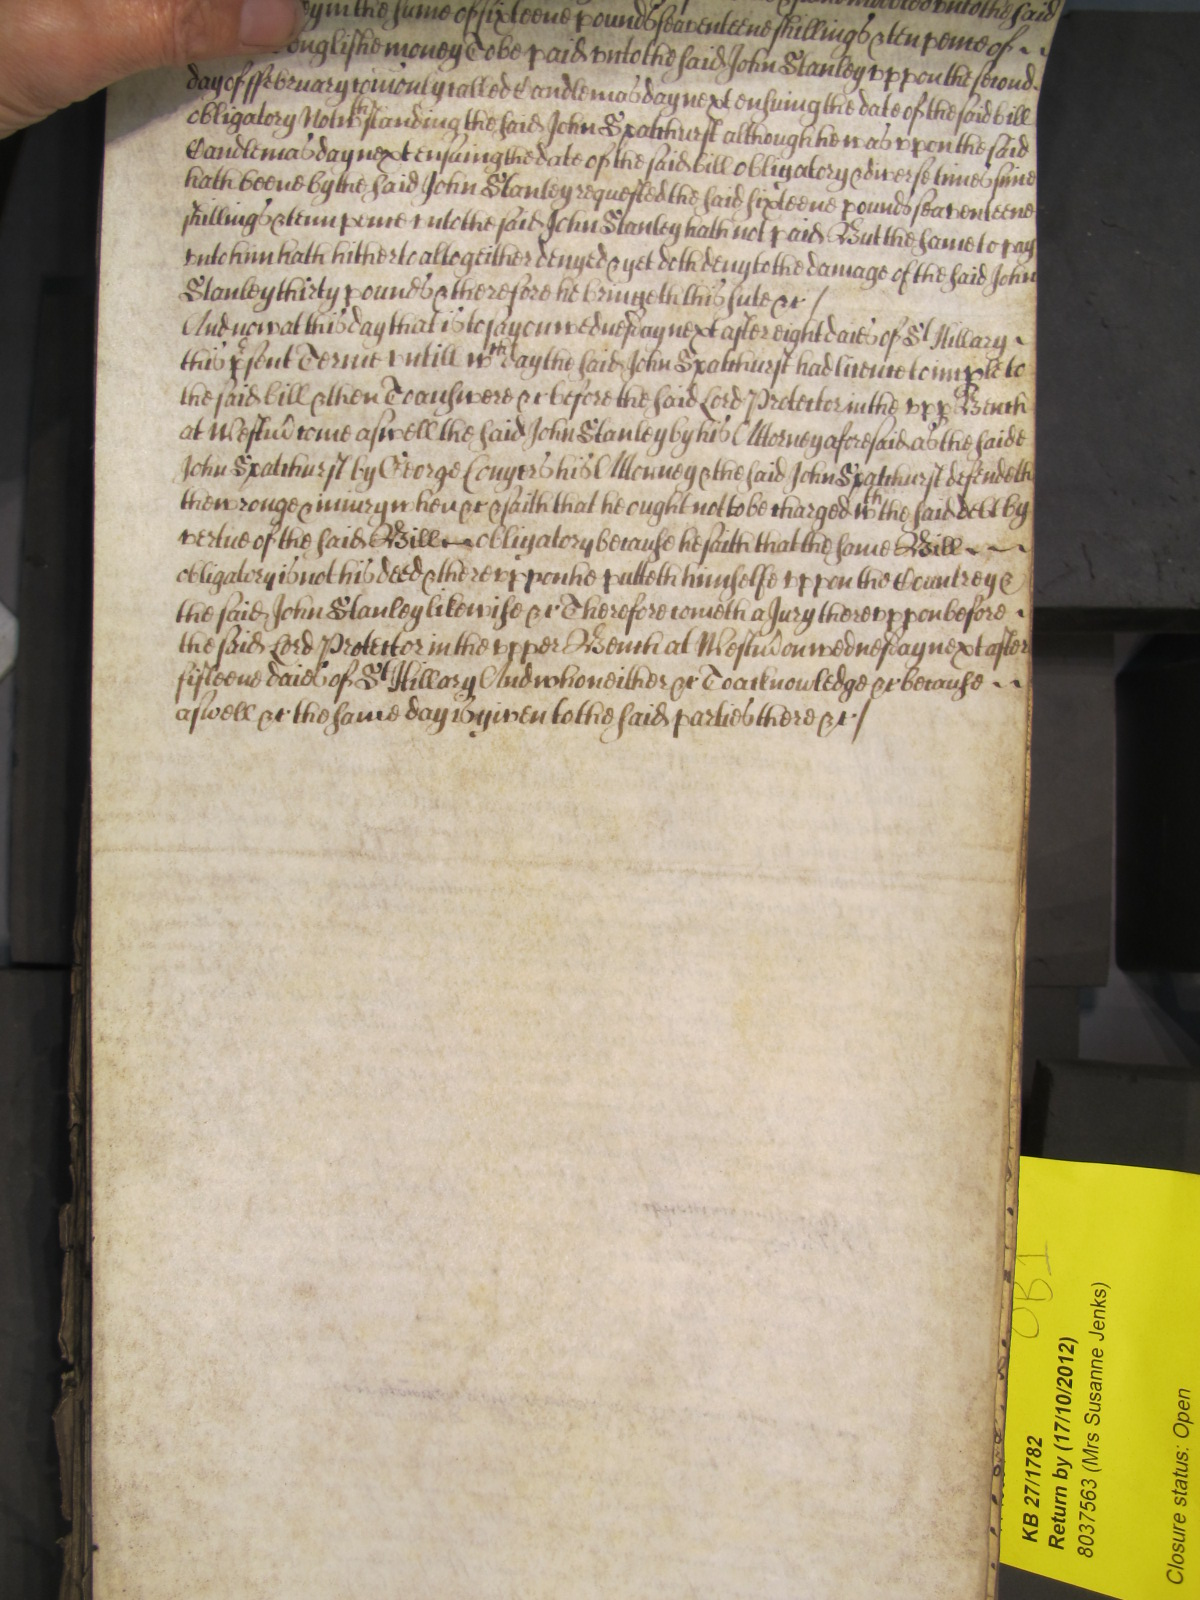 in the sume of sixteene pounds seaventeene shillings & ten pence of
Englishe money To be paid unto the said John Stanley uppon the second
day of ffebruary comonly called Candlemas day next ensuing the date of the said bill
obligatory Notwthstanding the said John Spatchurst although he was uppon the said
Candlemas day next ensuing the date of the said bill obligatory & diverse times since
hath beene by the said John Stanley requested the said sixteene pounds seaventeene
shillings & tenn pence unto the said John Stanley hath not paid But the same to pay
unto him hath hitherto altogeither denyed & yet doth deny to the damage of the said John
Stanley thirty pounds & therefore he bringeth his sute &c /
And now at this day that is to say on wednesday next after eight daies of St Hillary
this psent Terme untill wth day the said John Spatchurst had licence to imple to
the said bill & then To answere &c before the said Lord Protector in the upp Bench
at Westm come aswell the said John Stanley by his Attorney aforesaid as the saide
John Spatchurst by George Conyers his Attorney & the said John Spatchurst defendeth
the wronge & iniury when &c & saith that he ought not to be charged wth the said debt by
vertue of the said Bill obligatory because he saith that the same Bill
obligatory is not his deed & there uppon he putteth himselfe uppon the Countrey &
the said John Stanley likewise &c Therefore cometh a Jury thereuppon before
the said Lord Protector in the upper Bench at Westm on wednesday next after
fifteene daies of St Hillary And who neither &c To acknowledge &c because
aswell &c the same day is given to the said parties there &c /
OB1
KB 27/1782
Return by (17/10/2012)
8037563 (Mrs Susanne Jenks)
Closure status: Open